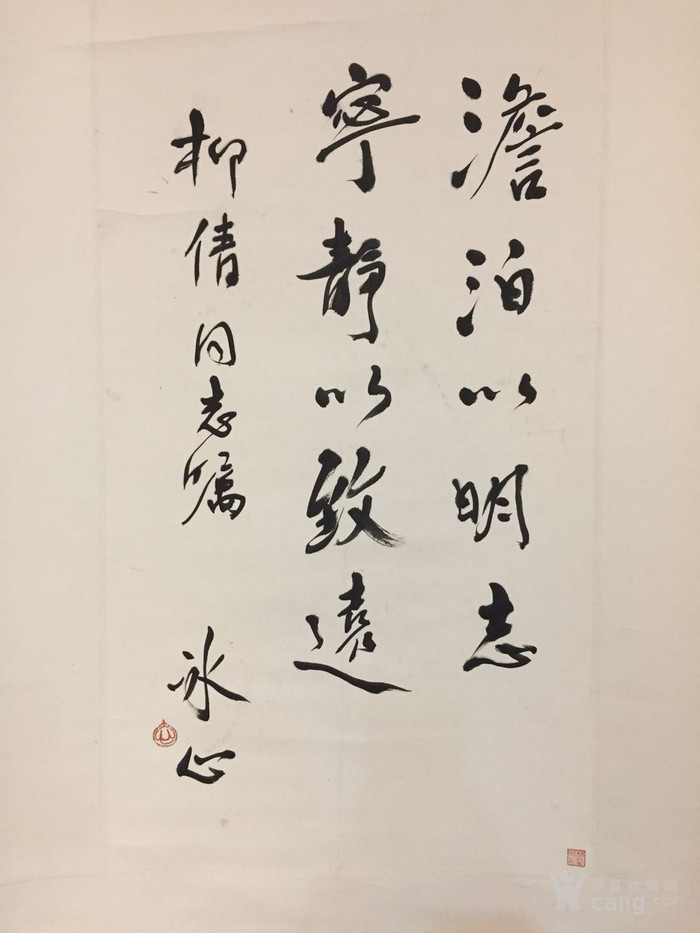 澹泊以明志
寧靜以致遠
柳倩同志嘱
冰心
华夏收藏网
cang.com